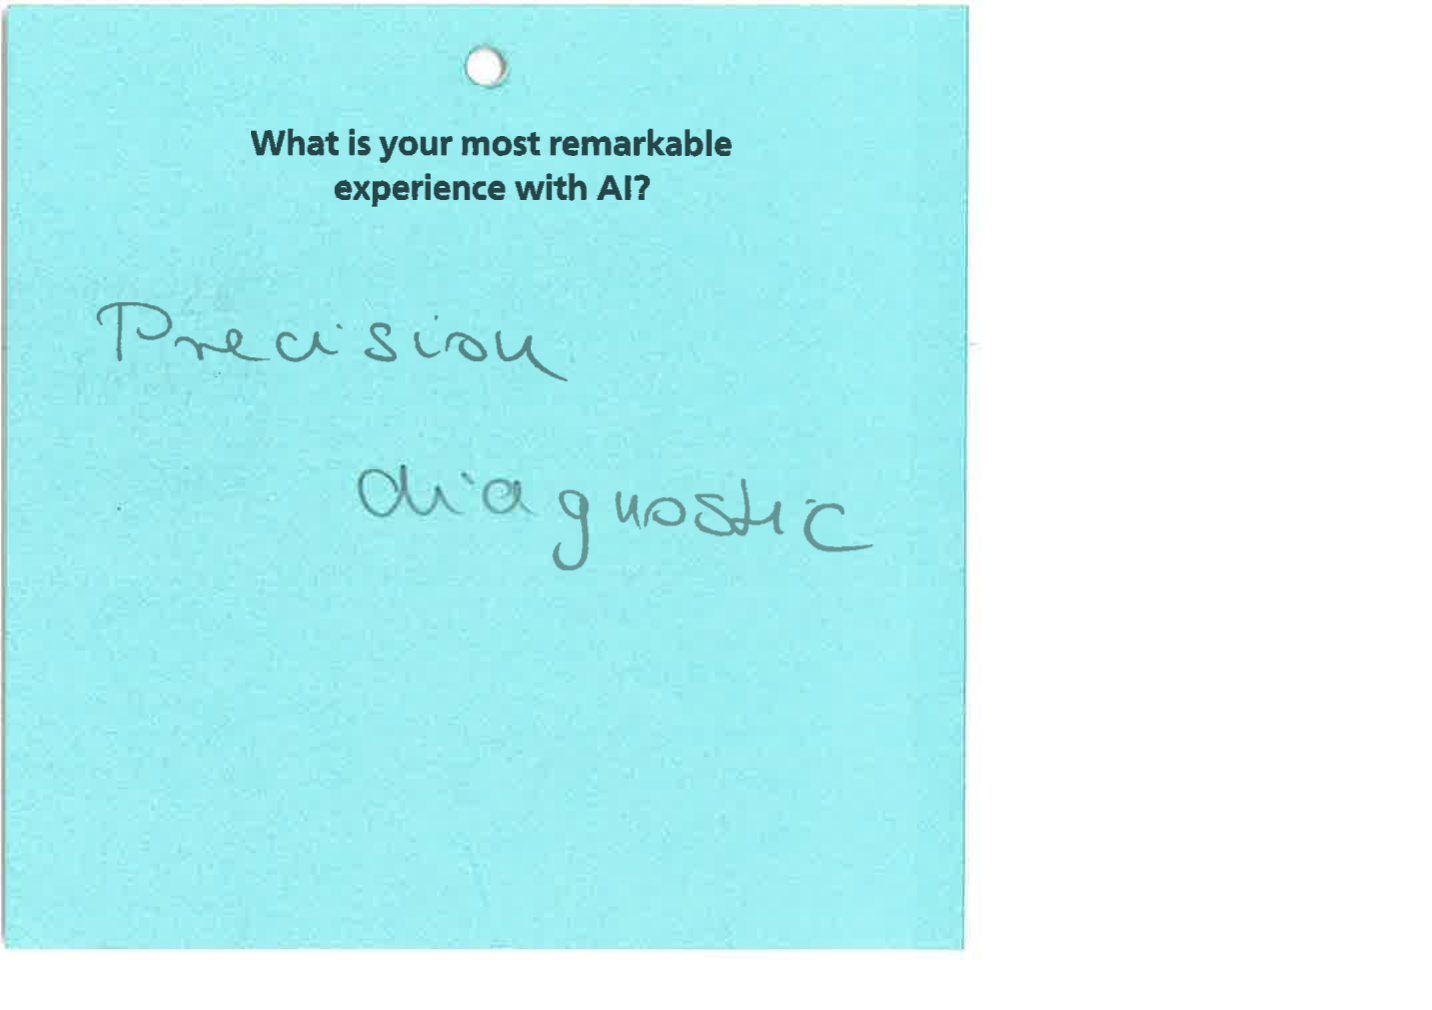 What is your most remarkable
experience with AI?
Precision
diagnostic